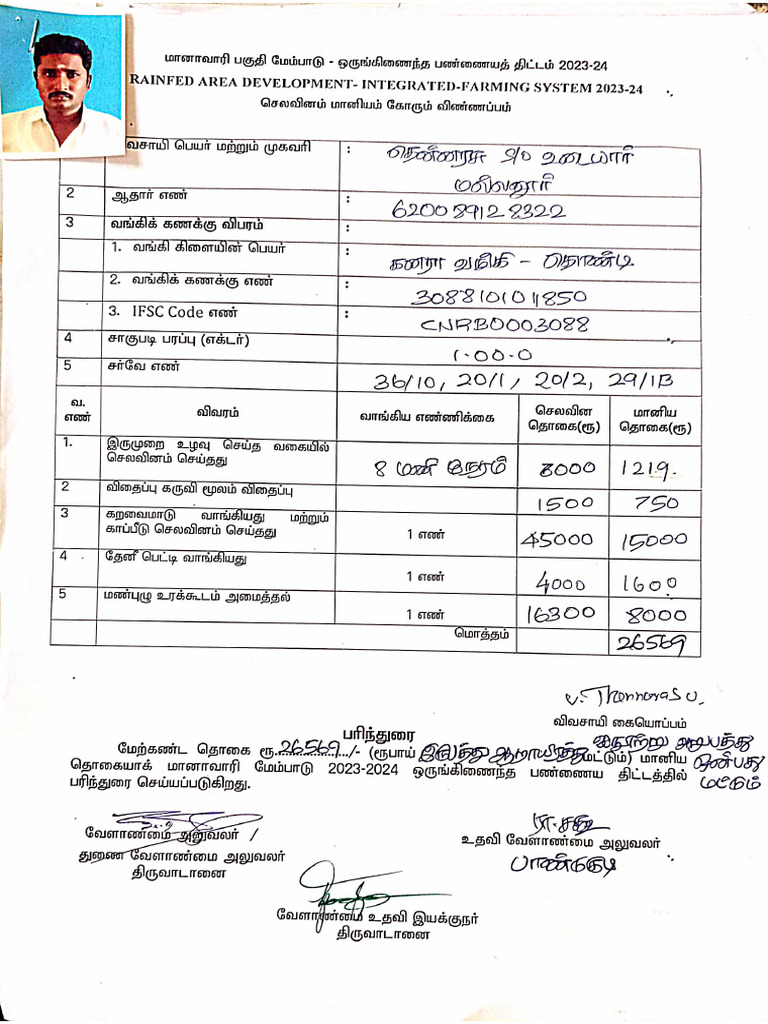 மானாவாரி பகுதி மேம்பாடு - ஒருங்கிணைந்த பண்ணையத் திட்டம் 2023-24
RAINFED AREA DEVELOPMENT- INTEGRATED-FARMING SYSTEM 2023-24
செலவினம் மானியம் கோரும் விண்ணப்பம்
வசாயி பெயர் மற்றும் முகவரி : தென்னரசு S/o உடையார்
மல்லனூர்
2 ஆதார் எண் : 6200 8912 8322
3 வங்கிக் கணக்கு விபரம் :
1. வங்கி கிளையின் பெயர் : கனரா வங்கி - தொண்டி
2. வங்கிக் கணக்கு எண் : 3088101011850
3. IFSC Code எண் : CNRB0003088
4 சாகுபடி பரப்பு (எக்டர்) 1-00-0
5 சர்வே எண் 36/10, 20/1, 20/2, 29/1B
வ. எண் விவரம் வாங்கிய எண்ணிக்கை செலவின தொகை(ரூ) மானிய தொகை(ரூ)
1. இருமுறை உழவு செய்த வகையில் செலவினம் செய்தது 8 மணி நேரம் 8000 1219
2 விதைப்பு கருவி மூலம் விதைப்பு 1500 750
3 கறவைமாடு வாங்கியது மற்றும் காப்பீடு செலவினம் செய்தது 1 எண் 45000 15000
4 தேனீ பெட்டி வாங்கியது 1 எண் 4000 1600
5 மண்புழு உரக்கூடம் அமைத்தல் 1 எண் 16300 8000
மொத்தம் 26569
V. Thennarasu.
விவசாயி கையொப்பம்
பரிந்துரை
மேற்கண்ட தொகை ரூ. 26569 /- (ரூபாய் இருபத்து ஆறாயிரத்து ஐநூற்று அறுபத்து ஒன்பது மட்டும் மட்டும்) மானிய
தொகையாக் மானாவாரி மேம்பாடு 2023-2024 ஒருங்கிணைந்த பண்ணைய திட்டத்தில்
பரிந்துரை செய்யப்படுகிறது.
வேளாண்மை அலுவலர் /
துணை வேளாண்மை அலுவலர்
திருவாடானை
உதவி வேளாண்மை அலுவலர்
பாண்டுகுடி
வேளாண்மை உதவி இயக்குநர்
திருவாடானை